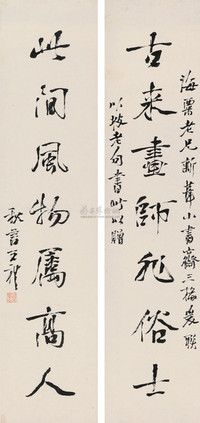 海粟老兄新葺小書齋三楹爰聯
古來畫師非俗士
以坡老句書此以贈
此間風物屬高人